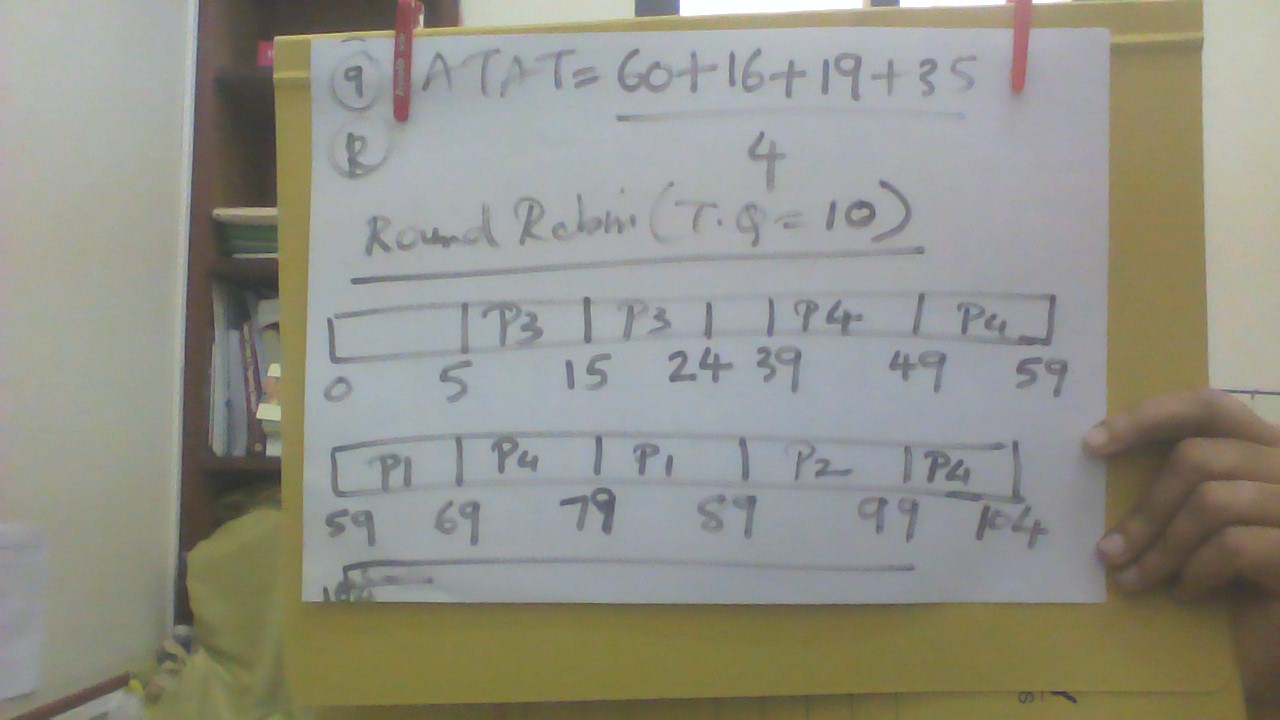 9 ATAT = 60+16+19+35
R 4
Round Robin (T.Q = 10)
P3 P3 P4 P4
0 5 15 24 39 49 59
P1 P4 P1 P2 P4
59 69 79 89 99 104